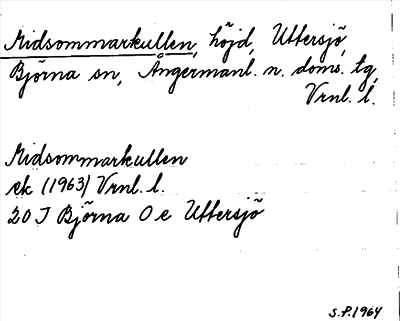 Midsommarkullen, höjd, Uttersjö,
Björna sn, Ångermanl. n. doms. tg,
Vrnl. l.
Midsommarkullen
ek (1963) Vrnl. l.
20 J Björna O e Uttersjö
S.P. 1964